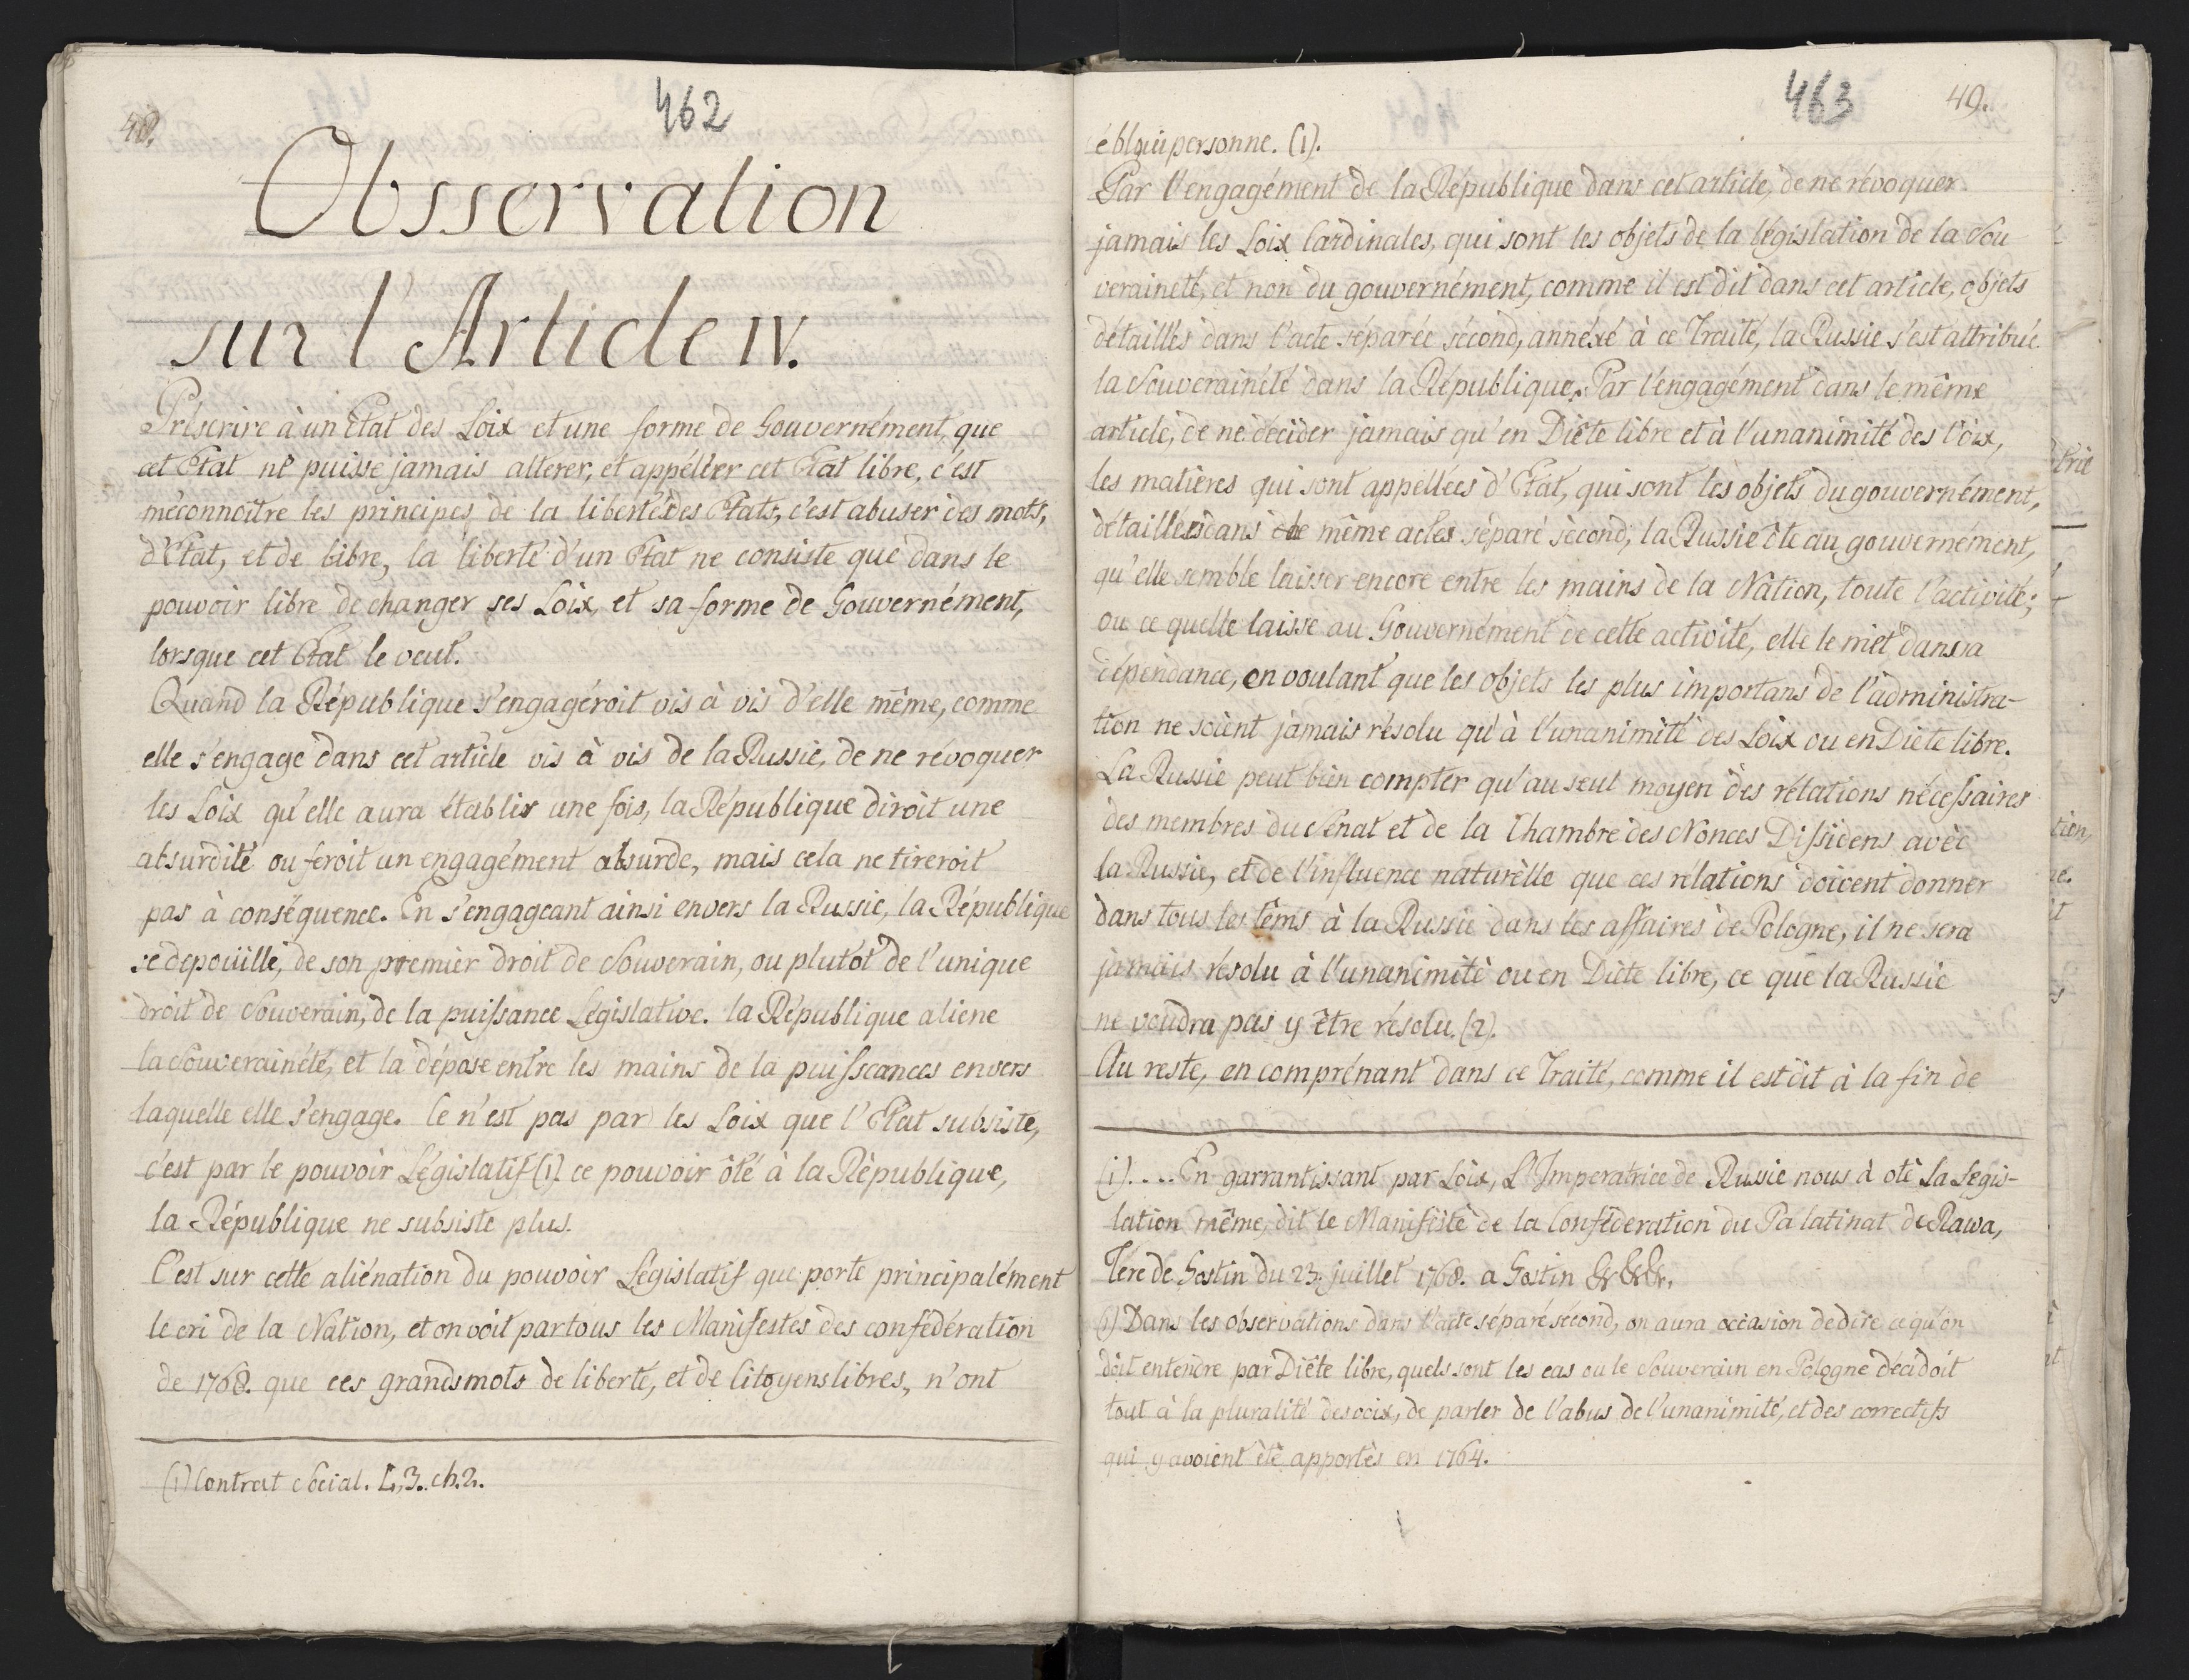 48.
462
Obsservation
sur l Article IV.
Préscrire à un Etat des Loix et une forme de Gouvernément, que
cet Etat ne puisse jamais alterer, et appéller cet Etat libre, c'est
méconnoître les principes de la liberté des Etats, c'est abuser des mots,
d'Etat, et de libre, la liberté d'un Etat ne consiste que dans le
pouvoir libre de changer ses Loix, et sa forme de Gouvernément,
lorsque cet Etat le veut.
Quand la République s'engagéroit vis à vis d'elle même, comme
elle s'engage dans cet article vis à vis de la Russie, de ne révoquer
les Loix qu'elle aura établis une fois, la République diroit une
absurdité ou feroit un engagément absurde, mais cela ne tireroit
pas à conséquence. En s'engageant ainsi envers la Russie, la République
se depoüille, de son premier droit de Souverain, ou plutot de l'unique
droit de Souverain, de la puissance Législative. la République aliene
la Souverainété, et la dépose entre les mains de la puisscances envers
laquelle elle s'engage. Ce n'est pas par les Loix que l'Etat subsiste,
c'est par le pouvoir Législatif (1) ce pouvoir ôté à la République,
la République ne subsiste plus.
C'est sur cette aliénation du pouvoir Législatif que porte principalément
le cri de la Nation, et on voit par tous les Manifestes des confédération
de 1768. que ces grands mots de liberté, et de Citoyens libres, n'ont
(1) Contrat Social. L, 3. ch. 2.
463
49.
éblouipersonne. (1).
Par l'engagément de la République dans cet article, de ne révoquer
jamais les Loix Cardinales, qui sont les objets de la législation de la Sou
veraineté, et non du gouvernément, comme il est dit dans cet article, objets
détaillés dans l'acte séparée sécond, annéxé à ce Traité, la Russie s'est attribué
la Souverainété dans la République. Par l'engagément dans le même
article, de ne décider jamais qu'en Diéte libre et à l'unanimité des Voix,
les matières qui sont appéllées d'Etat, qui sont les objets du gouvernément,
détaillés dans le même actes séparé sécond, la Russie ôte au gouvernément,
qu'elle semble laisser encore entre les mains de la Nation, toute l'activité;
ou ce quelle laisse au Gouvernément de cette activité, elle le met dans sa
dépendance, en voulant que les objets les plus importans de l'administra-
tion ne soient jamais résolu qu'à l'unanimité des Loix ou en Diéte libre.
La Russie peut bien compter qu'au seul moyen des rélations nécessaires
des membres du Sénat et de la Chambre des Nonces Dissidens avec
la Russie, et de l'influence naturèlle que ces rélations doivent donner
dans tous les têms à la Russie dans les affaires de Pologne, il ne sera
jamais résolu à l'unanimité ou en Diéte libre, ce que la Russie
ne voudra pas y être résolu. (2).
Au reste, en comprénant dans ce Traité, comme il est dit à la fin de
(1).... En garrantissant par Loix, L'Imperatrice de Russie nous à oté la Legis-
lation même, dit le Manifeste de la Conféderation du Palatinat de Rawa,
Tére de Gostin du 23. juillet 1768. a Gostin &c &c &c.
(1) Dans les observations dans l'acte séparé sécond, on aura occasion de dire ce qu'on
doit entendre par Diéte libre, quels sont les cas ou le Souverain en Pologne décidoit
tout à la pluralité des voix, de parler de l'abus de l'unanimité, et des correctifs
qui y avoient été apportés en 1764.